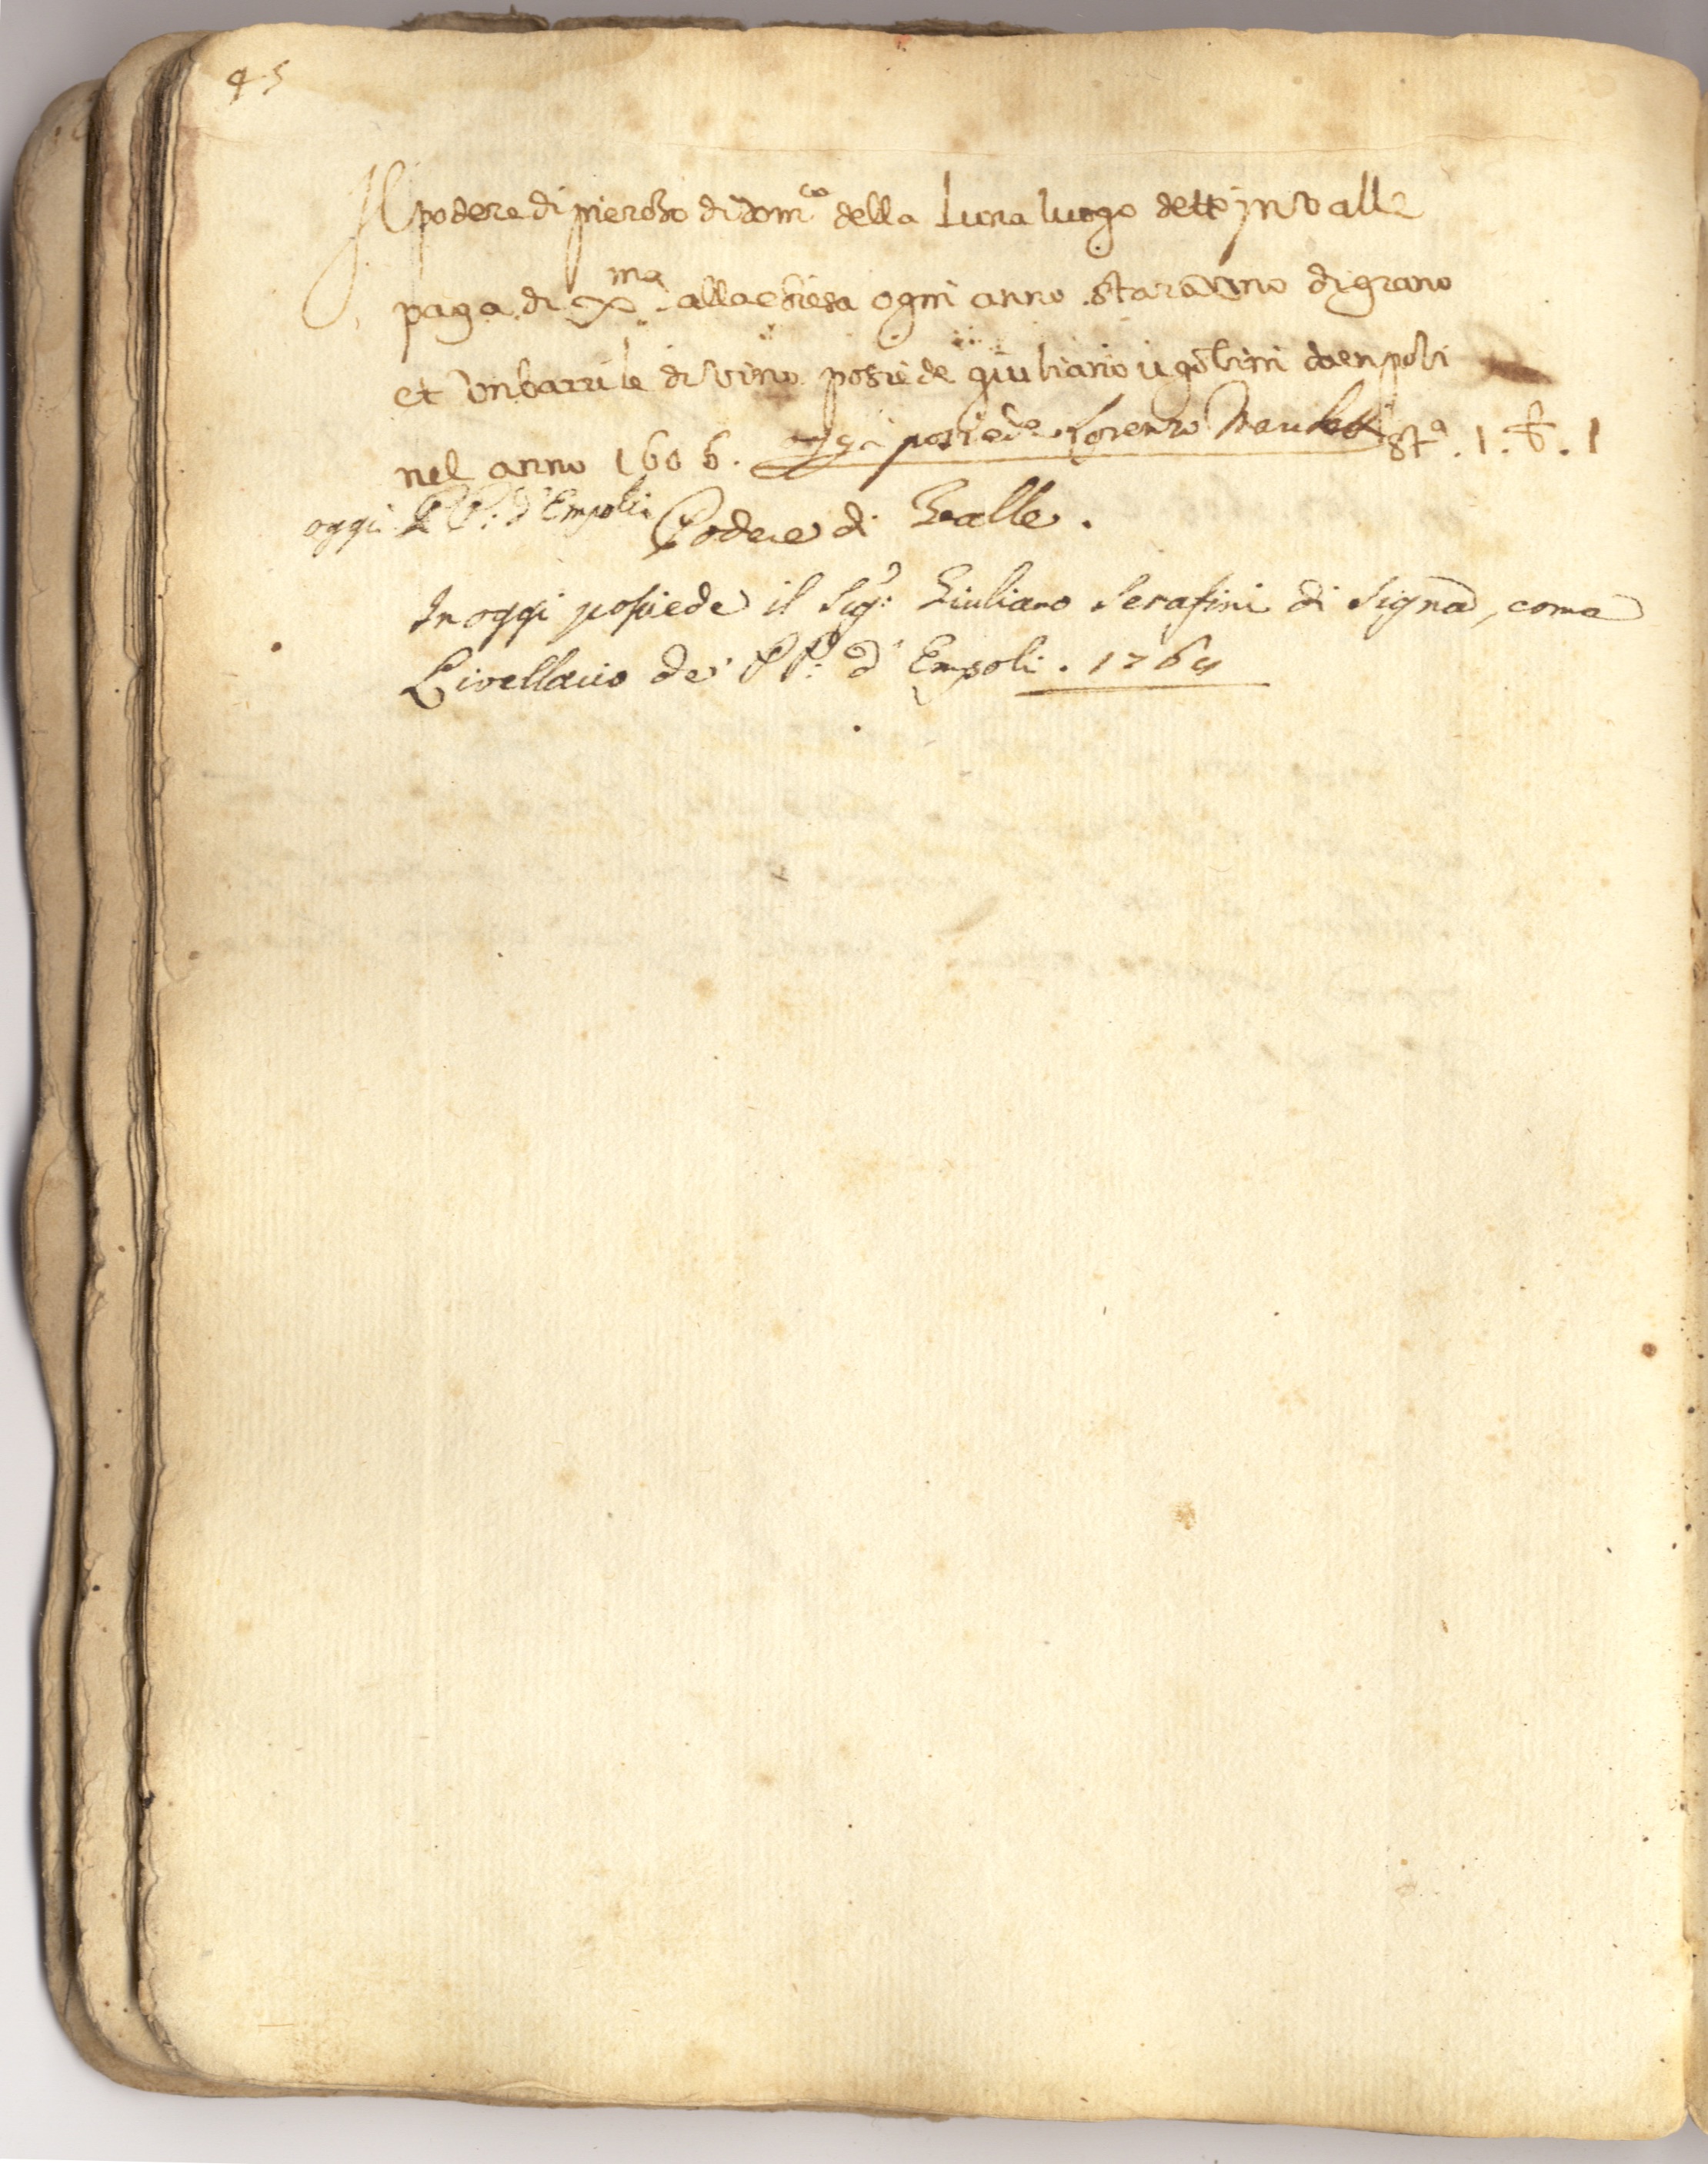 45
Il podere di pieroʒo di dom^co della Luna luogo detto in valle
paga di X^ma alla chiesa ogni anno staravuno di grano
et un barrile di vino posiede giuliano ugolini da enpoli
nel anno 1606. oggi possiede Lorenzo st^a. 1. b. 1
oggi PP: d'Empoli Podere di Valle.
In oggi possiede il Sig^r: Giuliano Serafini di Signa, come
Livellario de' PP: d'Empoli. 1764